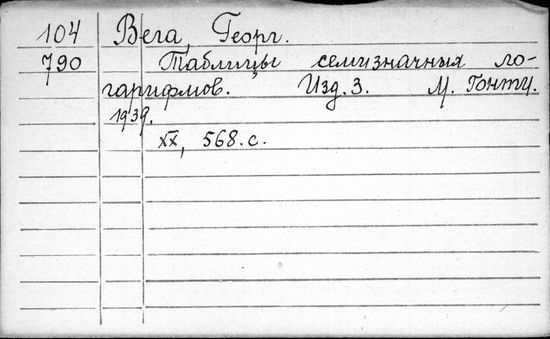 104 Вега, Георг.
790 Таблицы семизначных ло-
гарифмов. Изд. 3. М. Гонти.
1939.
XX, 568. с.